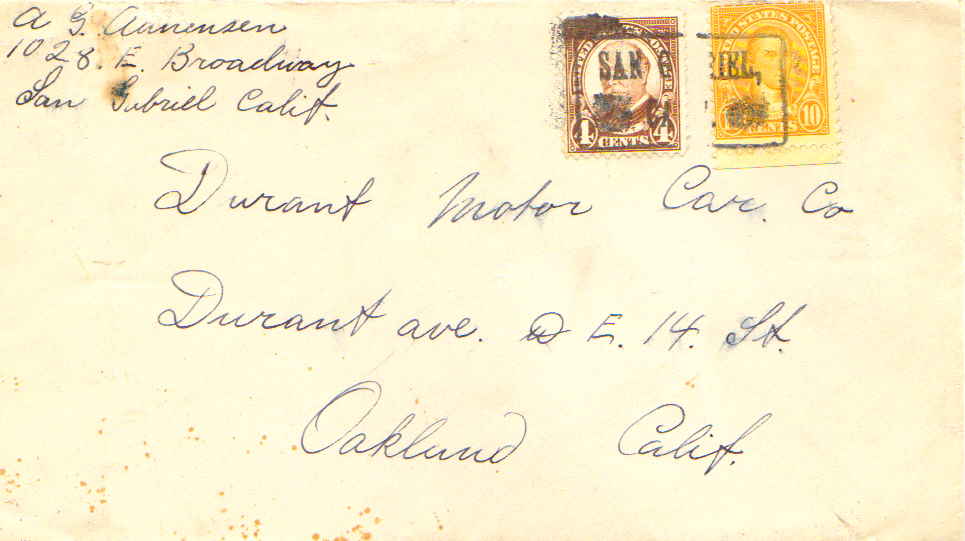 A G. Aunensen
1028. E. Broadway
San Gabriel Calif.
UNITED STATES POSTAGE
4 CENTS 4
UNITED STATES POSTAGE
10 CENTS 10
SAN GABRIEL,
Durant Motor Car. Co
Durant ave. & E. 14. St.
Oakland Calif.